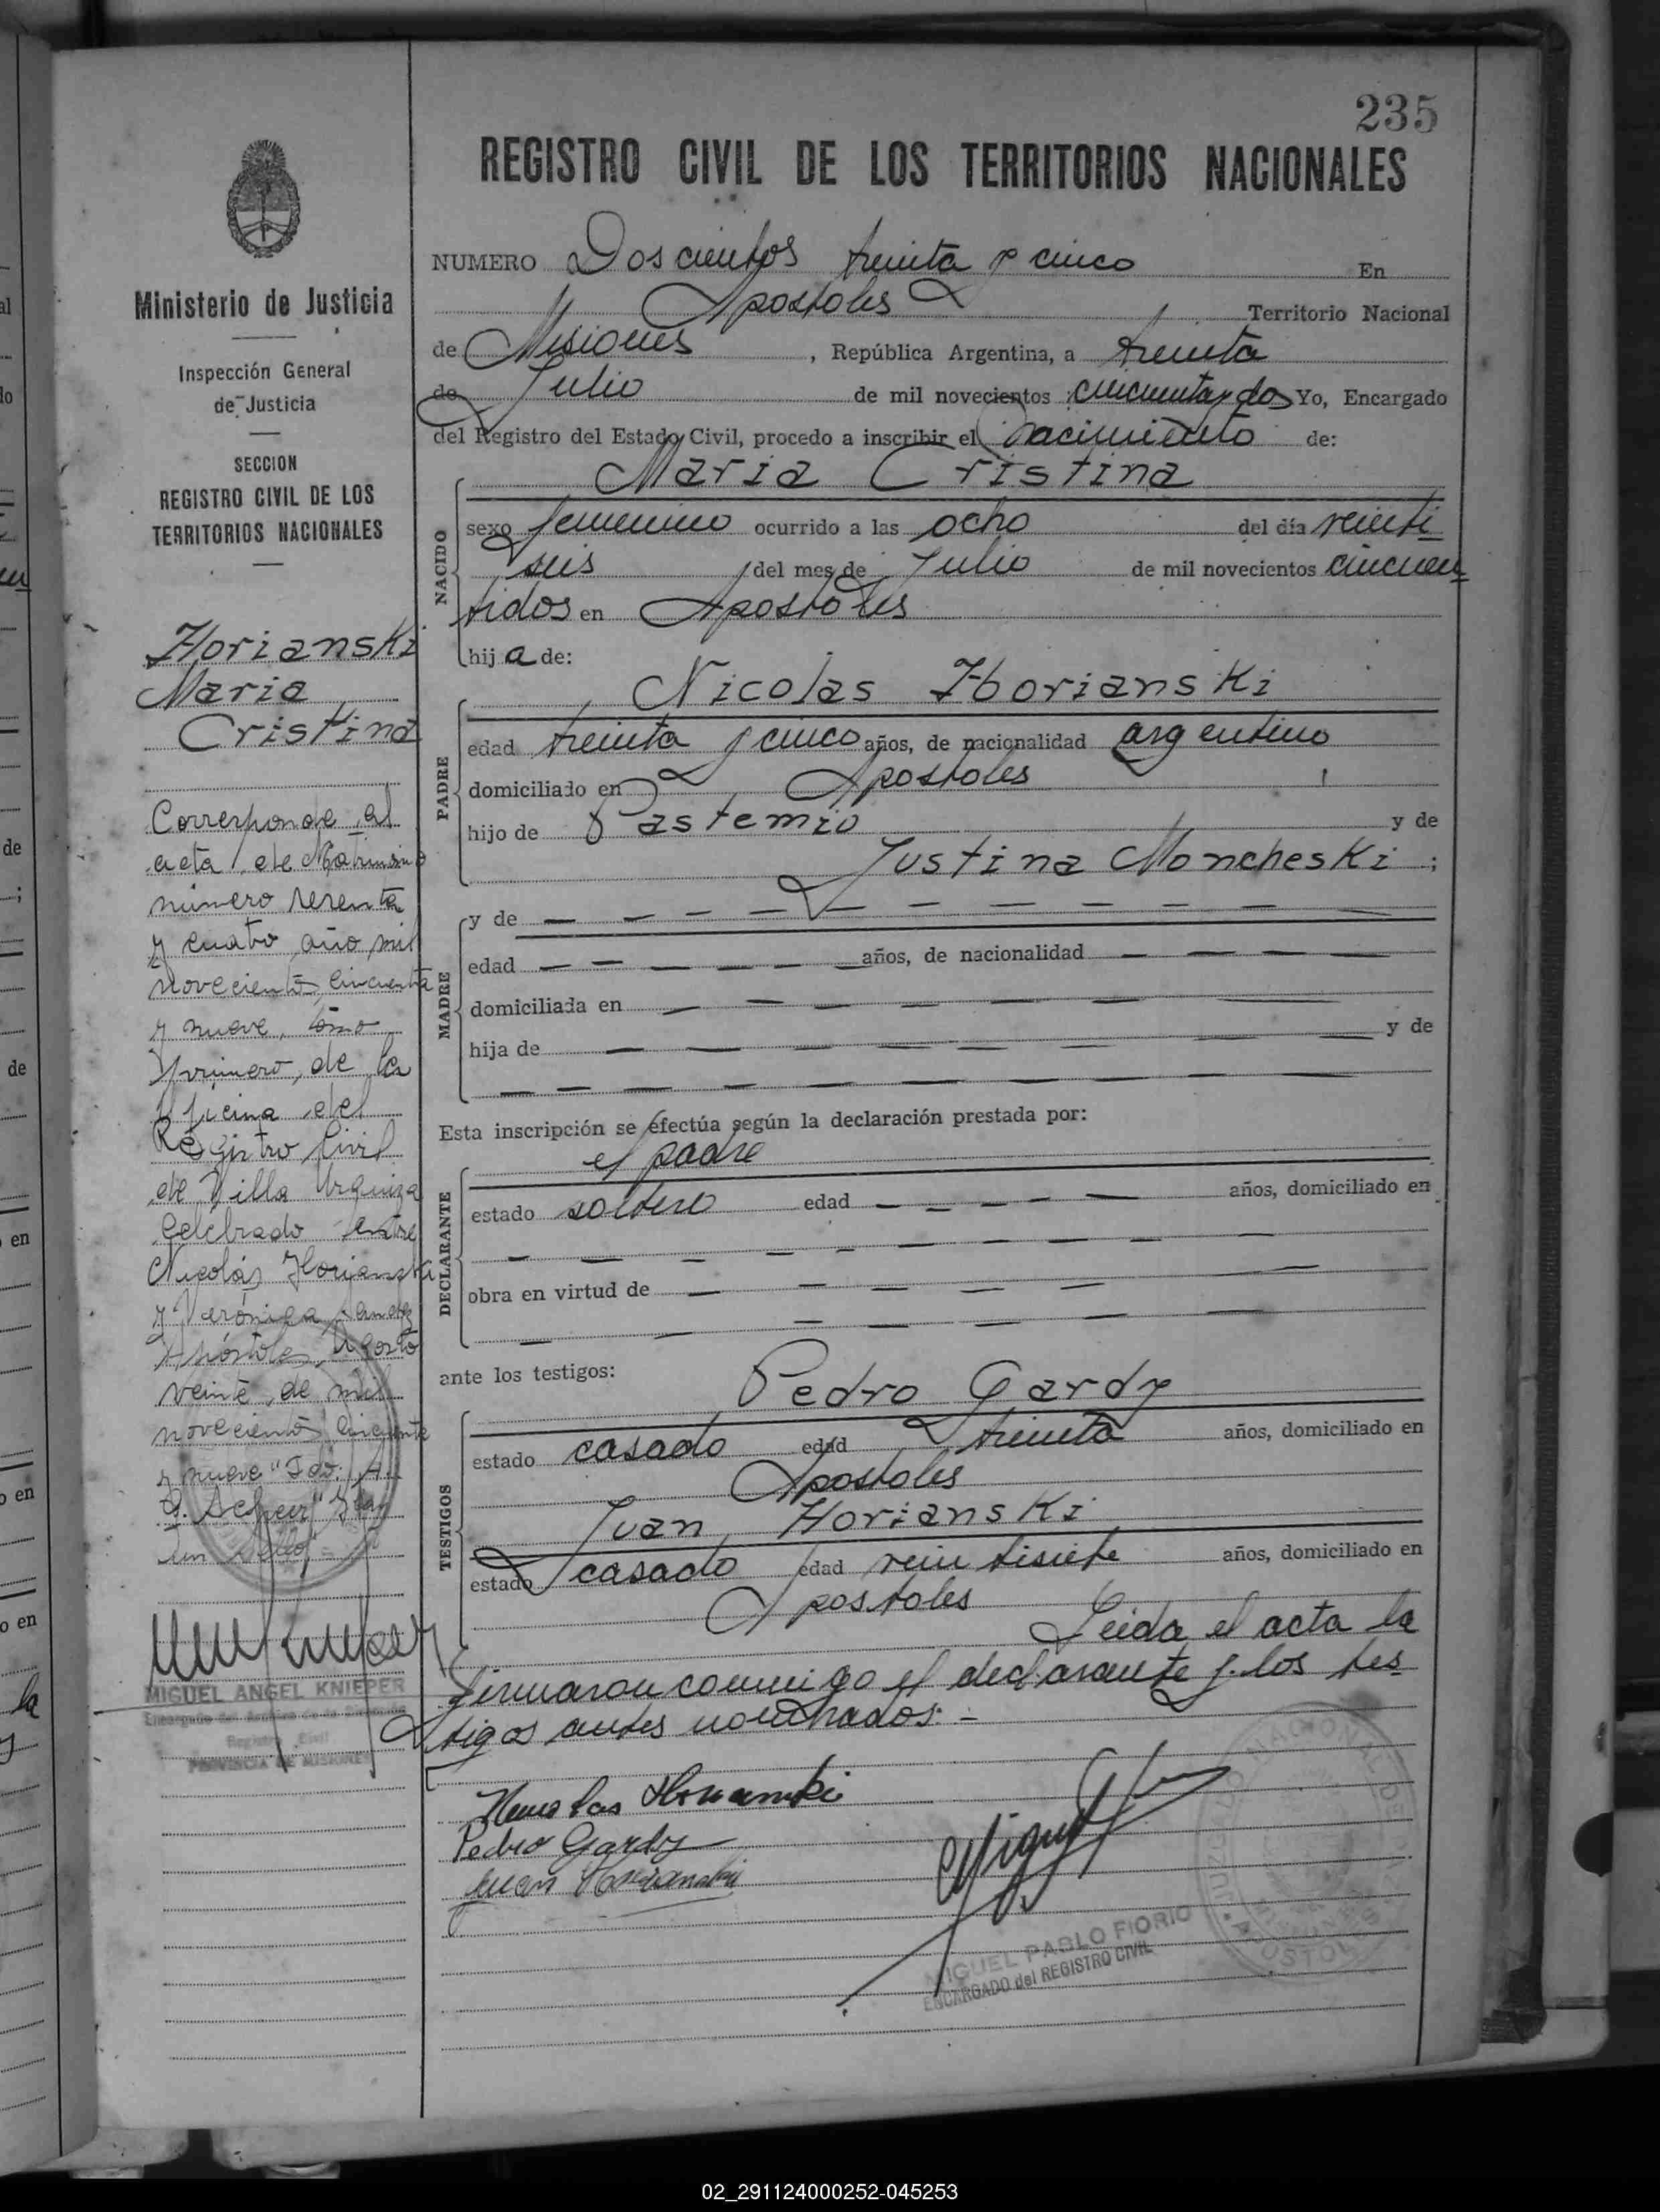 235
REGISTRO CIVIL DE LOS TERRITORIOS NACIONALES
NUMERO Doscientos treinta y cinco En
Apostoles Territorio Nacional
de Misiones, República Argentina, a treinta
de Julio de mil novecientos cincuenta y dos Yo, Encargado
del Registro del Estado Civil, procedo a inscribir el nacimiento de:
Maria Cristina
NACIDO
sexo femenino ocurrido a las ocho del día veinti
seis del mes de Julio de mil novecientos cincuen
tidos en Apostoles
hija de:
Nicolas Horianski
PADRE
edad treinta y cinco años, de nacionalidad argentino
domiciliado en Apostoles
hijo de Pastemio y de
Justina Moncheski ;
MADRE
y de
edad años, de nacionalidad
domiciliada en
hija de y de
Esta inscripción se efectúa según la declaración prestada por:
el padre
DECLARANTE
estado soltero edad años, domiciliado en
obra en virtud de
ante los testigos:
Pedro Gardy
TESTIGOS
estado casado edad treinta años, domiciliado en
Apostoles
Juan Horianski
estado casado edad veintisiete años, domiciliado en
Apostoles
Leida el acta la
firmaron conmigo el declarante y los tes
tigos antes nombrados. -
Nicolas Horianski
Pedro Gardy
Juan Horianski
MIGUEL PABLO FIORIO
ENCARGADO del REGISTRO CIVIL
Ministerio de Justicia
Inspección General
de Justicia
SECCION
REGISTRO CIVIL DE LOS
TERRITORIOS NACIONALES
Horianski
Maria
Cristina
Corresponde al
acta de Matrimonio
número sesenta
y cuatro año mil
novecientos cincuenta
y nueve, tomo
primero, de la
oficina del
Registro Civil
de Villa Urquiza
Celebrado entre
Nicolás Horianski
y Verónica
Apóstoles, Agosto
veinte de mil
novecientos cincuenta
y nueve "Fdo.
Hay
un sello
MIGUEL ANGEL KNIEPER
Registro Civil
PROVINCIA DE MISIONES
02_291124000252-045253